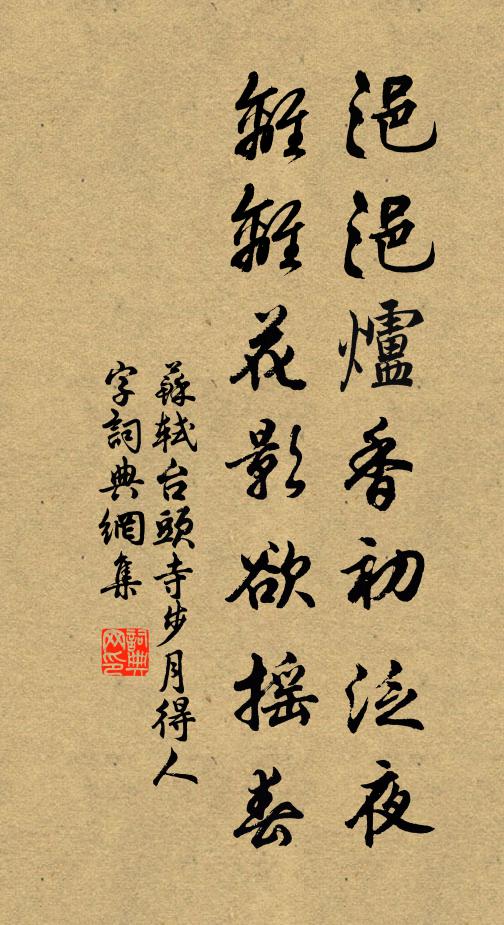 浥浥爐香初泛夜
離離花影欲摇春
蘇軾台頭寺步月得人
字詞典網集
詞典
网印